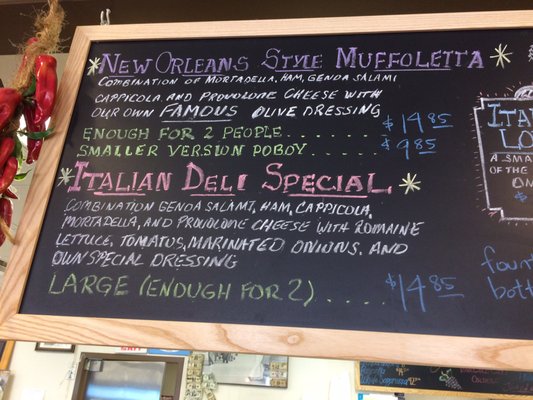 NEW ORLEANS STYLE MUFFOLETTA
COMBINATION OF MORTADELLA, HAM, GENOA SALAMI
CAPPICOLA, AND PROVOLONE CHEESE WITH
OUR OWN FAMOUS OLIVE DRESSING
ENOUGH FOR 2 PEOPLE......... $14.85
SMALLER VERSION POBOY....... $9.85
ITALIAN DELI SPECIAL
COMBINATION GENOA SALAMI, HAM, CAPPICOLA,
MORTADELLA, AND PROVOLONE CHEESE WITH ROMAINE
LETTUCE, TOMATOS, MARINATED ONIONS, AND
OWN SPECIAL DRESSING
LARGE (ENOUGH FOR 2)..... $14.85
ITAL
LO
A SMA
OF THE
ON
$
foun
bott